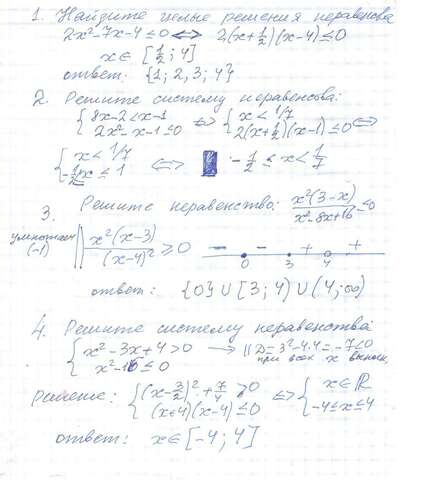 1. Найдите целые решения неравенсва
2x²-7x-4≤0 <=> 2(x+1/2)(x-4)≤0
x∈[1/2; 4]
ответ: {1; 2, 3; 4}
2. Решите систему неравенства:
{8x-2<x-1 <=> {x<1/7
{2x²-x-1≤0 {2(x+1/2)(x-1)≤0 <=>
{x<1/7 <=> -1/2≤x<1/7
{-1/2≤x≤1
3. Решите неравенство: x²(3-x)/(x²-8x+16)≤0
умножаем (-1) || x²(x-3)/(x-4)²≥0
- - + +
0 3 4
ответ: {0}∪[3; 4)∪(4; ∞)
4. Решите систему неравенства
{x²-3x+4>0 → || D=3²-4·4=-7<0
{x²-16≤0 при всех x выполн.
Решение: {(x-3/2)²+7/4>0 <=> {x∈ℝ
{(x+4)(x-4)≤0 {-4≤x≤4
ответ: x∈[-4; 4]